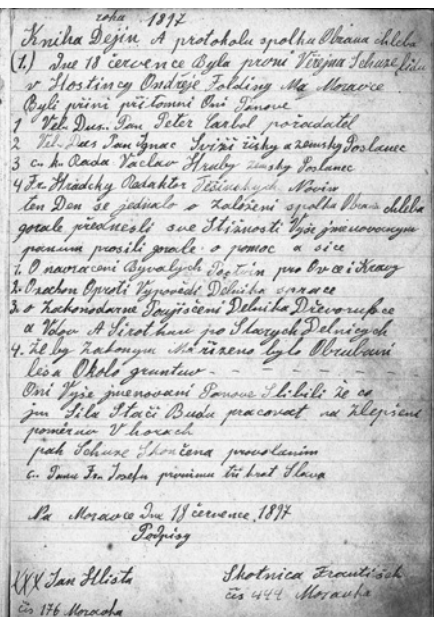 roka 1897
Kniha Dějin A protokolu spolku Obrana chleba
(1.) Dne 18 července Byla první Veřejna Schuze lidu
v Hostincy Ondřeje Folding Na Moravce
Byli přítomni Oni Panove
1 Vel. Dus. Pan Peter pořadatel
2 Vel. Dus Pan Ignac Sviži řišky a zemsky Poslanec
3 c. k. Rada Vaclav Hruby zemsky Poslanec
4 Fr. Hradcky Redaktor Těšinskych Novin
ten Den se jednalo o založeni spolku Obrana chleba
gorale přednesli sve Stižnosti Vyše jmenovanym
panum prosili gorale o pomoc a sice
1. O navraceni Byvalych Pastvin pro Ovce i Kravy
2. Ochron Oproti Vypovědi Delnika z prace
3. o Zakonodarne Pojisčeni Delnika Dřevorubce
a Vdov A Sirotkuv po Starych Delnicych
4. Že by Zakonym Nařizeno bylo Obrubani
lesa Okolo gruntuv - - - - - -
Oni Vyše jmenovani Panove Slibili že co
jim Sila Stači Budu pracovat na Zlepšeni
poměruv V horach
pak Schuze Skončena provolanim
c. Panu Fr. Josefu prvnimu tři krat Slava
Na Moravce Dne 18 července 1897
Podpisy
XXX Jan Hlista
Skotnica František
čis 176 Moravka
čis 444 Moravka